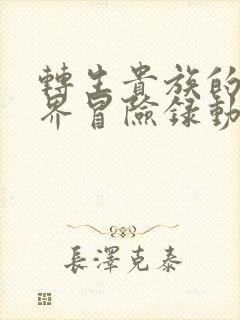 轉生貴族的
界冒險録動
長澤克泰